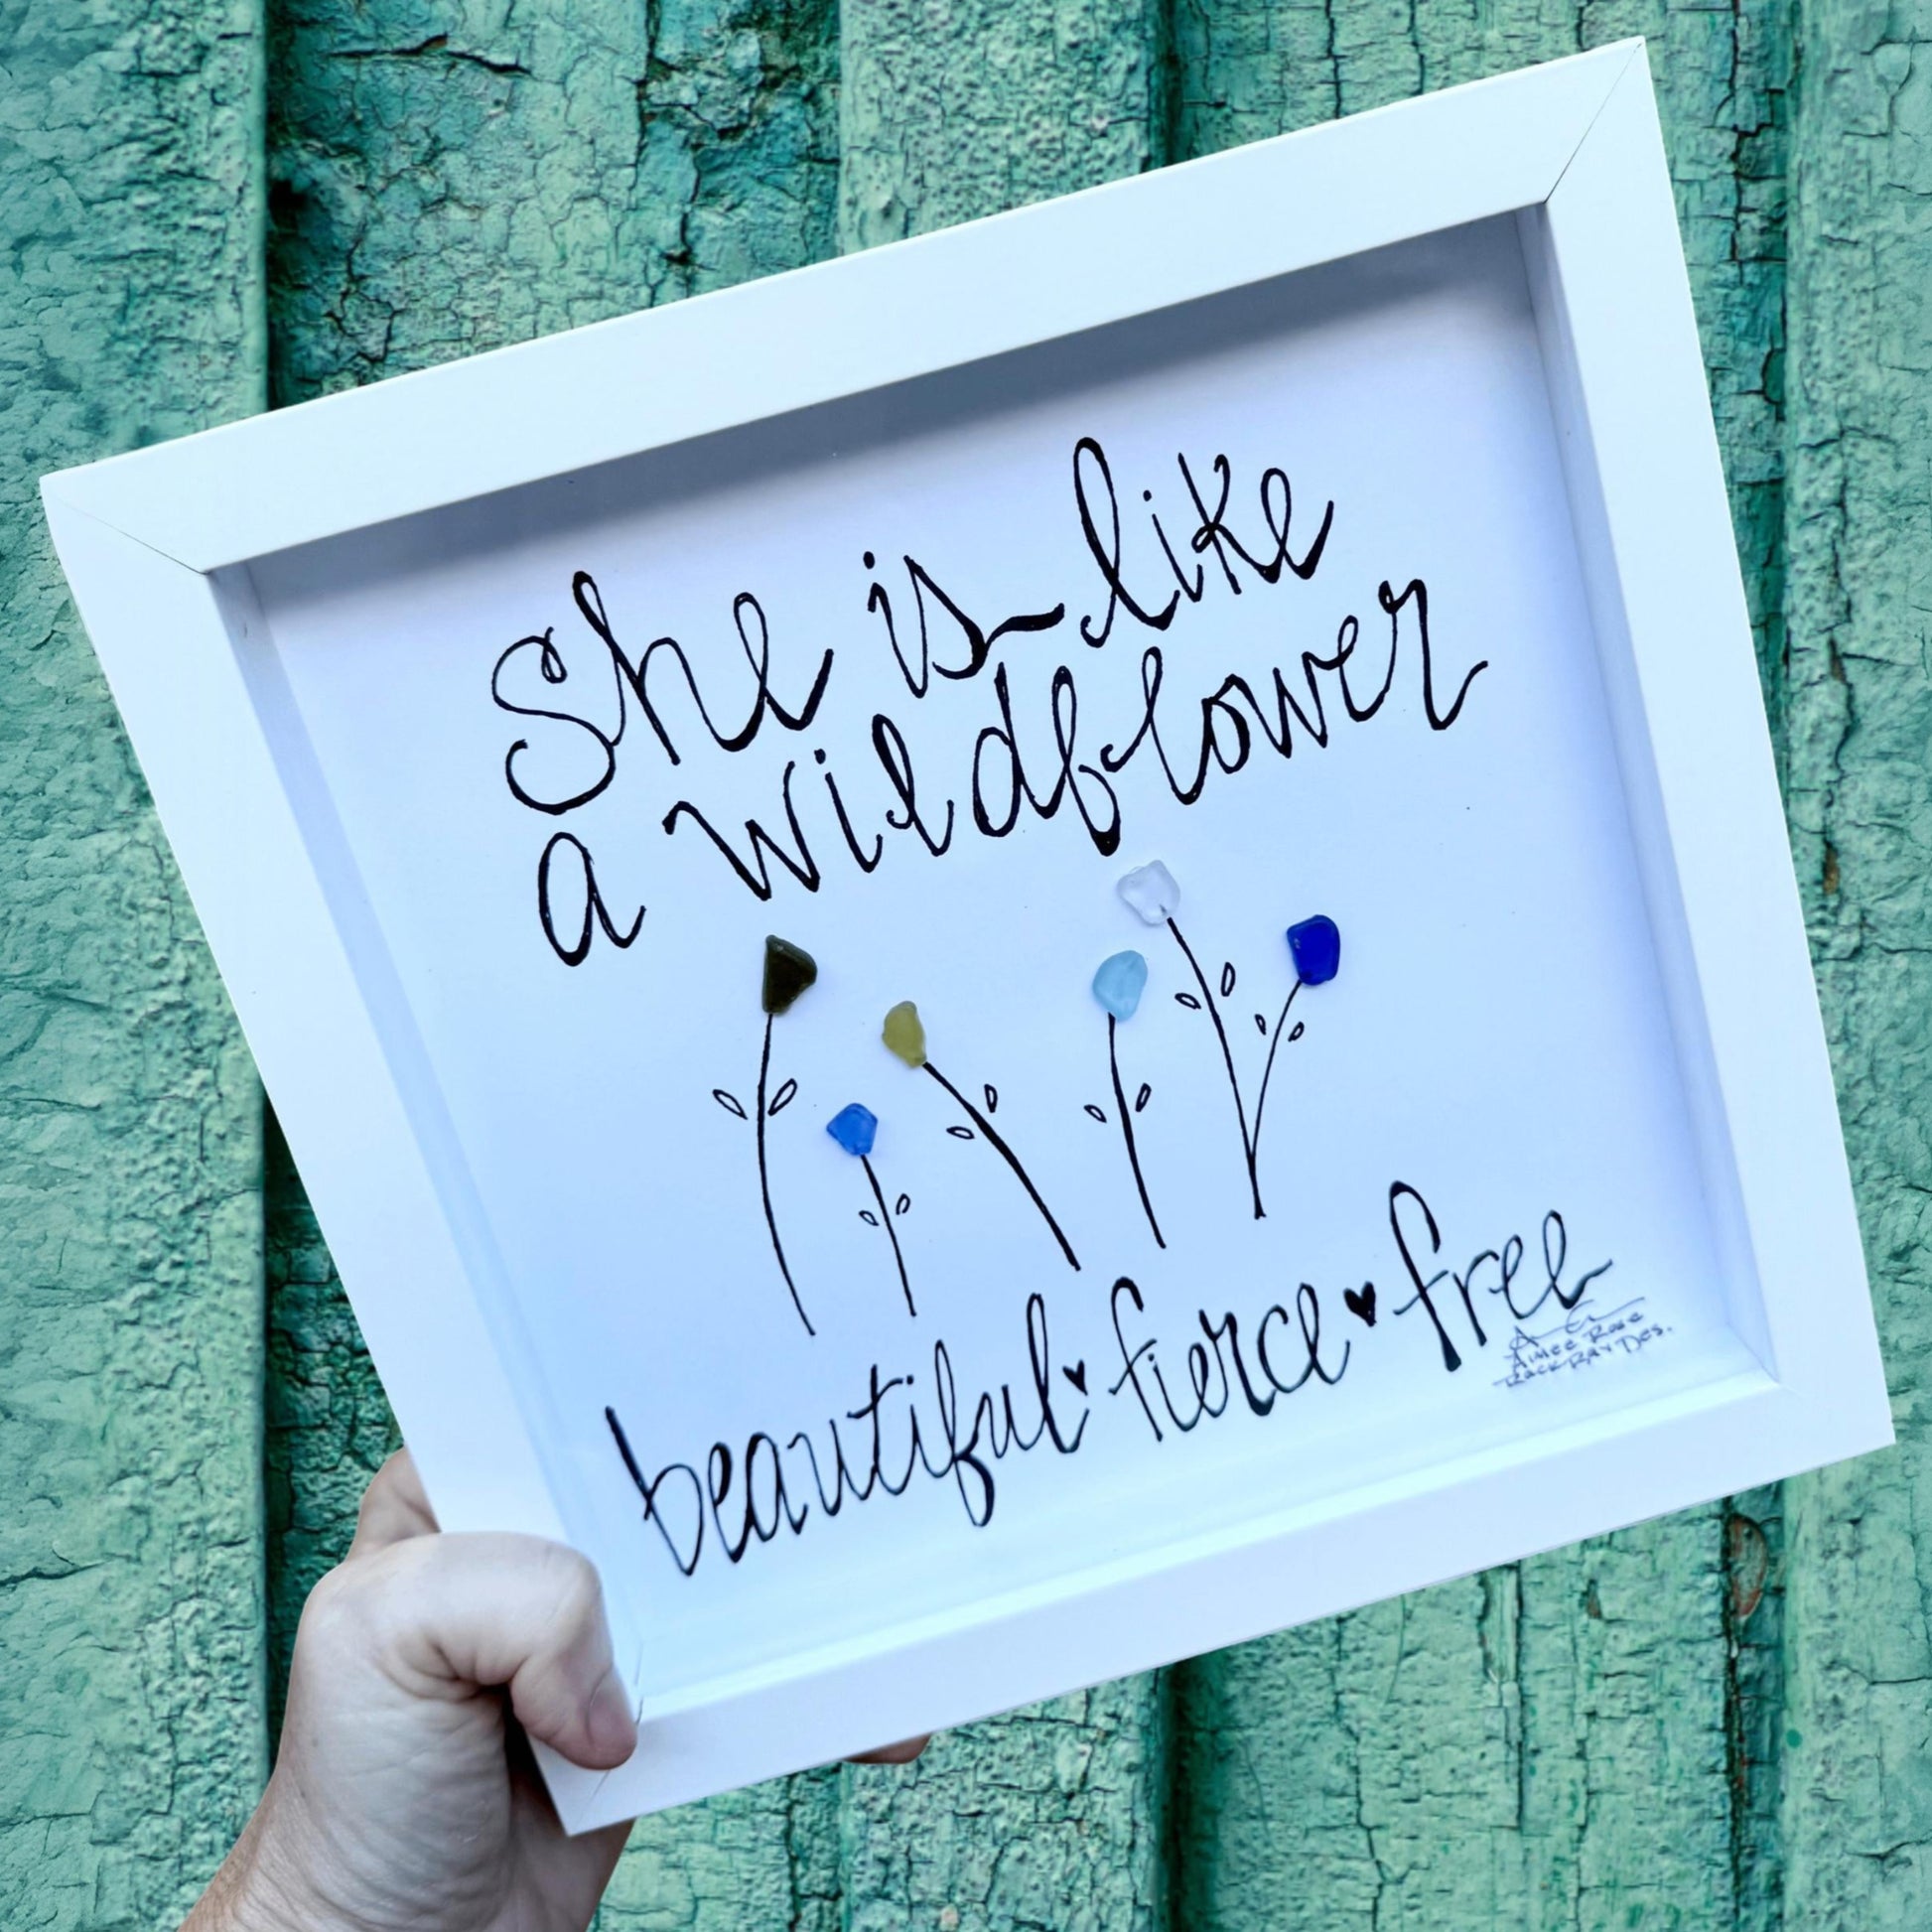 She is like
a wildflower
beautiful ♥ fierce ♥ free
Aimee Rose